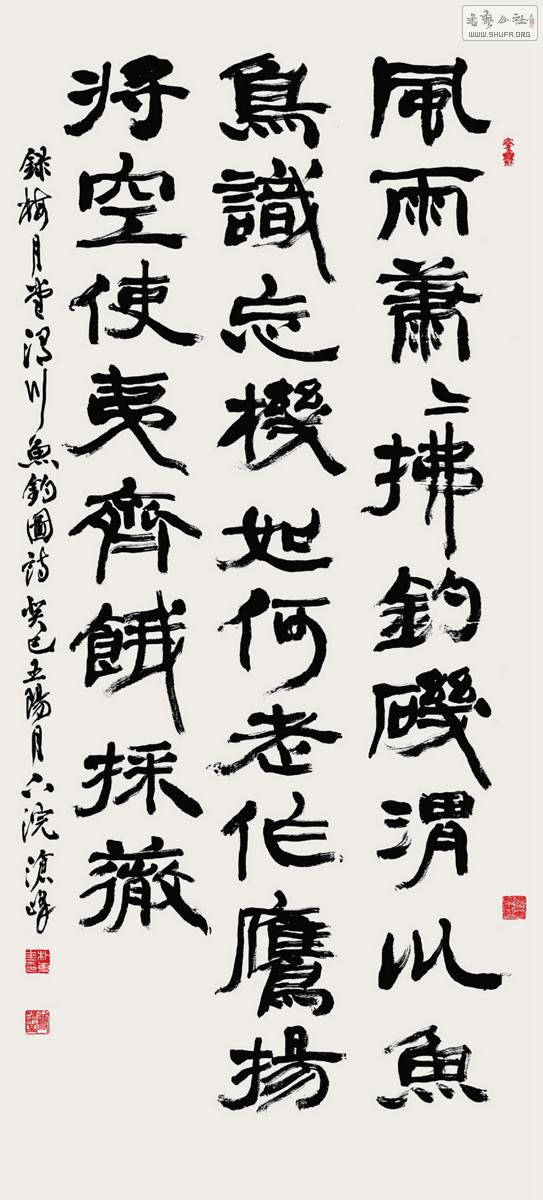 書藝公社
WWW.SHUFA.ORG
風雨蕭〻拂釣磯渭川魚
鳥識忘機如何老作鷹揚
将空使夷齊餓採薇
錄梅月堂渭川魚釣圖詩 癸巳陽月下浣 滄峰